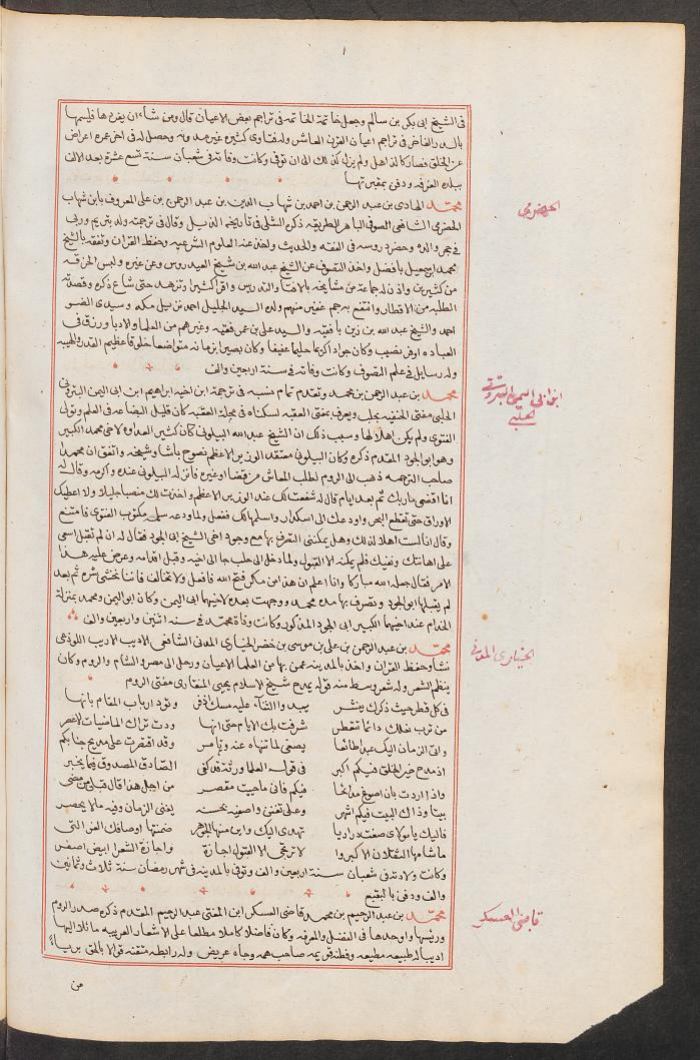 فى الشيخ ابى بكر بن سالم وجعل خاتمة الخاتمه فى تراجم بعض الاعيان قال ومن شاء ان يفردها فليسمها
بالدر الفاخر فى تراجم اعيان القرن العاشر وله فتاوى كثيره غير مدونه وحصل له فى اخر عمره اعراض
عن الخلق فصار كالذاهل ولم يزل كذلك الى ان توفى وكانت وفاته فى شعبان سنة تسع عشرة بعد الالف
ببلده الغرفه ودفن بمقبرتها
محمد الهادى بن عبد الرحمن بن احمد بن شهاب الدين بن عبد الرحمن بن على المعروف بابن شهاب
الحضرمى
الحضرمى الشافعى الصوفى الباهر الطريقه ذكره الشلى فى تاريخه الذيل وقال فى ترجمته ولد بتريم وربى
فى حجر والده وحضر دروسه فى الفقه والحديث واخذ عنه العلوم الشرعيه وحفظ القران وتفقه بالشيخ
محمد بن اسمعيل بافضل واخذ التصوف عن الشيخ عبد الله بن شيخ العيدروس وعن غيره ولبس الخرقه
من كثيرين واذن له جماعة من مشايخه بالافتا والتدريس واقرا كثيرا وتزهد حتى شاع ذكره وقصدته
الطلبه من الاقطار وانتفع به جم غفير منهم ولده السيد الجليل احمد نزيل مكه وسيدى الضو
احمد والشيخ عبد الله بن زين بافقيه والسيد على بن عمر فقيه وغيرهم من العلما والادبا ورزق فى
العباده اوفر نصيب وكان جوادا كريما حليما عفيفا وكان بصيرا بزمانه متواضعا خلوقا عظيم القدر والهيبه
وله رسايل فى علم التصوف وكانت وفاته فى سنة اربعين والف
محمد بن عبد الرحمن بن محمد وتقدم تمام نسبه فى ترجمة ابن اخيه ابراهيم ابن ابى اليمن البترونى
ابن ابى اليمن البترونى
الحلبى
الحلبى مفتى الحنفيه بحلب ويعرف بمفتى العقبه لسكناه فى محلة العقبه كان قليل البضاعه فى العلم وتولى
الفتوى ولم يكن اهلا لها وسبب ذلك ان الشيخ عبد الله البيلونى كان كثير العداوه لاخى محمد الكبير
وهو ابو الجود المقدم ذكره وكان البيلونى معتقد الوزير الاعظم نصوح باشا وشيخه واتفق ان محمدا
صاحب الترجمه ذهب الى الروم لطلب المعاش من قضا او غيره فانزله البيلونى عنده واكرمه وقال له
انا اقضى ماربك ثم بعد ايام قال له شفعت لك عند الوزير الاعظم واخذت لك منصبا جليلا ولا اعطيك
الاوراق حتى تقطع البحر واودعك الى اسكدار واسلمها لك ففعل ولما ودعه سلمه مكتوب الفتوى فامتنع
وقال انا لست اهلا لذلك وهل يمكننى التصرف بها مع وجود اخى الشيخ ابى الجود فقال له ان لم تقبل اسعى
على اهانتك ونفيك فلم يمكنه الا القبول ولما دخل الى حلب جا الى اخيه وقبل اقدامه وعرض عليه هذا
الامر فقال جعله الله مباركا وانا اعلم ان هذا من مكر فتح الله فافعل ولا تخالف فاننا نخشى شره ثم بعد
لم يقبلها ابو الجود وتصرف بها مده محمد ووجهت بعده لاخيهما ابى اليمن وكان ابو اليمن ومحمد بمنزلة
الخدام عند اخيهما الكبير ابى الجود المذكور وكانت وفاة محمد فى سنه اثنين واربعين والف
محمد بن عبد الرحمن بن على بن موسى بن خضر الخيارى المدنى الشافعى الاديب الاريب اللوذعى
الخيارى المدنى
نشا وحفظ القران واخذ بالمدينه عمن بها من العلما الاعيان ورحل الى مصر والشام والروم وكان
ينظم الشعر وله شعر وسط منه قوله يمدح شيخ الاسلام يحيى المنقارى مفتى الروم
فى كل قطر حيث ذكرك ينشر يبدو الثناء عليه مسك اذفر وتود ارباب المقام بانها
من ترب نعلك دائما تتعطر شرفت بك الايام حتى انها ودت تراك الماضيات الاعصر
وافى الزمان اليك عبدا طائعا يصغى لما تنهاه عنه وتامر وقد اقتصرت على مديح جنابكم
اذ مدح خير الخلق فيكم اكبر فى قوله العلما ورثته كفى الصادق المصدوق فيما يخبر
واذا اردت بان اصوغ مدائحا فيكم فانى ما حييت مقصر من اجل هذا قال قبلى من مضى
بيتا وذاك البيت فيكم اشهر وعلى تفنن واصفيه بحسنه يفنى الزمان وفيه ما لا يحصر
فاليك يا مولاى صغت دراريا تهدى اليك وابن منها الجوهر ضمنتها اوصافك الغر التى
ما شامها الثقلان الا كبروا لا ترتجى الا القبول اجازة واجازة الشعرا ابيض اصفر
وكانت ولادته فى شعبان سنة اربعين والف وتوفى بالمدينه فى شهر رمضان سنة ثلاث وثمانين
والف ودفن بالبقيع
محمد بن عبد الرحيم بن محمد قاضى العسكر ابن المفتى عبد الرحيم المقدم ذكره صدر الروم
قاضى العسكر
ورئيسها واوحدها فى الفضل والمعرفه وكان فاضلا كاملا مطلعا على الاشعار العربيه مائلا اليها
اديبا له طبيعه مطيعه وفطنة قويمه صاحب همه وجاه عريض وله رابطه متقنه قوالا بالحق بريئا
من